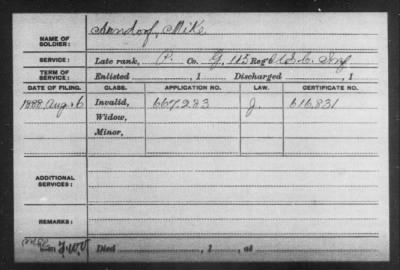 NAME OF SOLDIER: Arndorf, Mike
SERVICE: Late rank, P. Co. G, 115 Reg't U.S.C. Inf
TERM OF SERVICE: Enlisted , 1 Discharged , 1
DATE OF FILING. CLASS. APPLICATION NO. LAW. CERTIFICATE NO.
1888 Aug 6 Invalid, 667,283 J. 616,831
Widow,
Minor,
ADDITIONAL SERVICES:
REMARKS:
Died , 1 , at